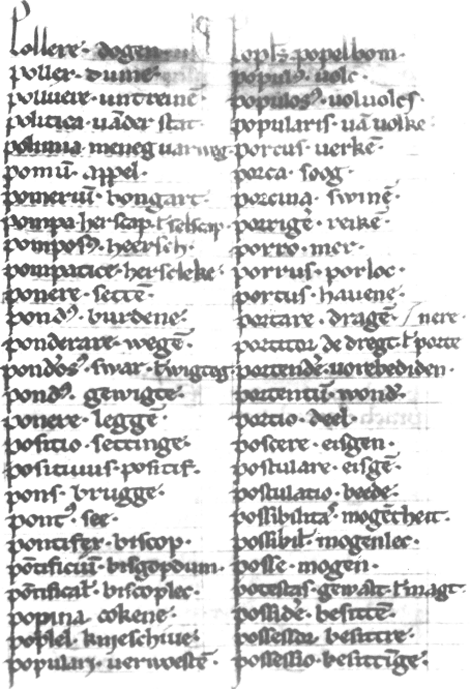 Pollere · dogen
poller · dume ·
polluere · untreinē ·
politica · vāder stat ·
polimia meneg varweg·
pomū · appel ·
pomeriū · bongart ·
pompa · herscap · ł selscap ·
pomposꝰ · heersch ·
pompatice · herseleke ·
ponere · settē ·
pondꝰ · burdene ·
ponderare · wegē ·
pondosꝰ · swar · ł wigteg ·
pondꝰ · gewigte ·
ponere · leggē ·
positio · settinge ·
positiuus · positif ·
pons · brugge ·
pontꝰ · see ·
pontifex · biscop ·
pōtificiū · bisgopdum ·
pōtifical' · biscoplec ·
popina · cokene ·
poplel · knieschiue ·
populari · uerwoestē ·
popelbom ·
populꝰ · uolc ·
populosꝰ · uoluolcs ·
popularis · uā uolke ·
porcus · uerkē ·
porca · soog ·
porcina · swinē ·
porrigē · reikē ·
porro · mer ·
porrus · porloc ·
portus · hauene ·
portare · dragē · nere ·
portitor · de dregt ł porte
portendē · uorebediden ·
portentū · wondˀ ·
portio · deel ·
poscere · eisgen ·
postulare · eisgē ·
postulatio · beede ·
possibilitaˢ · mogētheit ·
possibilˀ · mogenlec ·
posse · mogen ·
potestas · gewalt · ł magt ·
possidē · besittē ·
possessor · besittre ·
possessio · besittīge ·